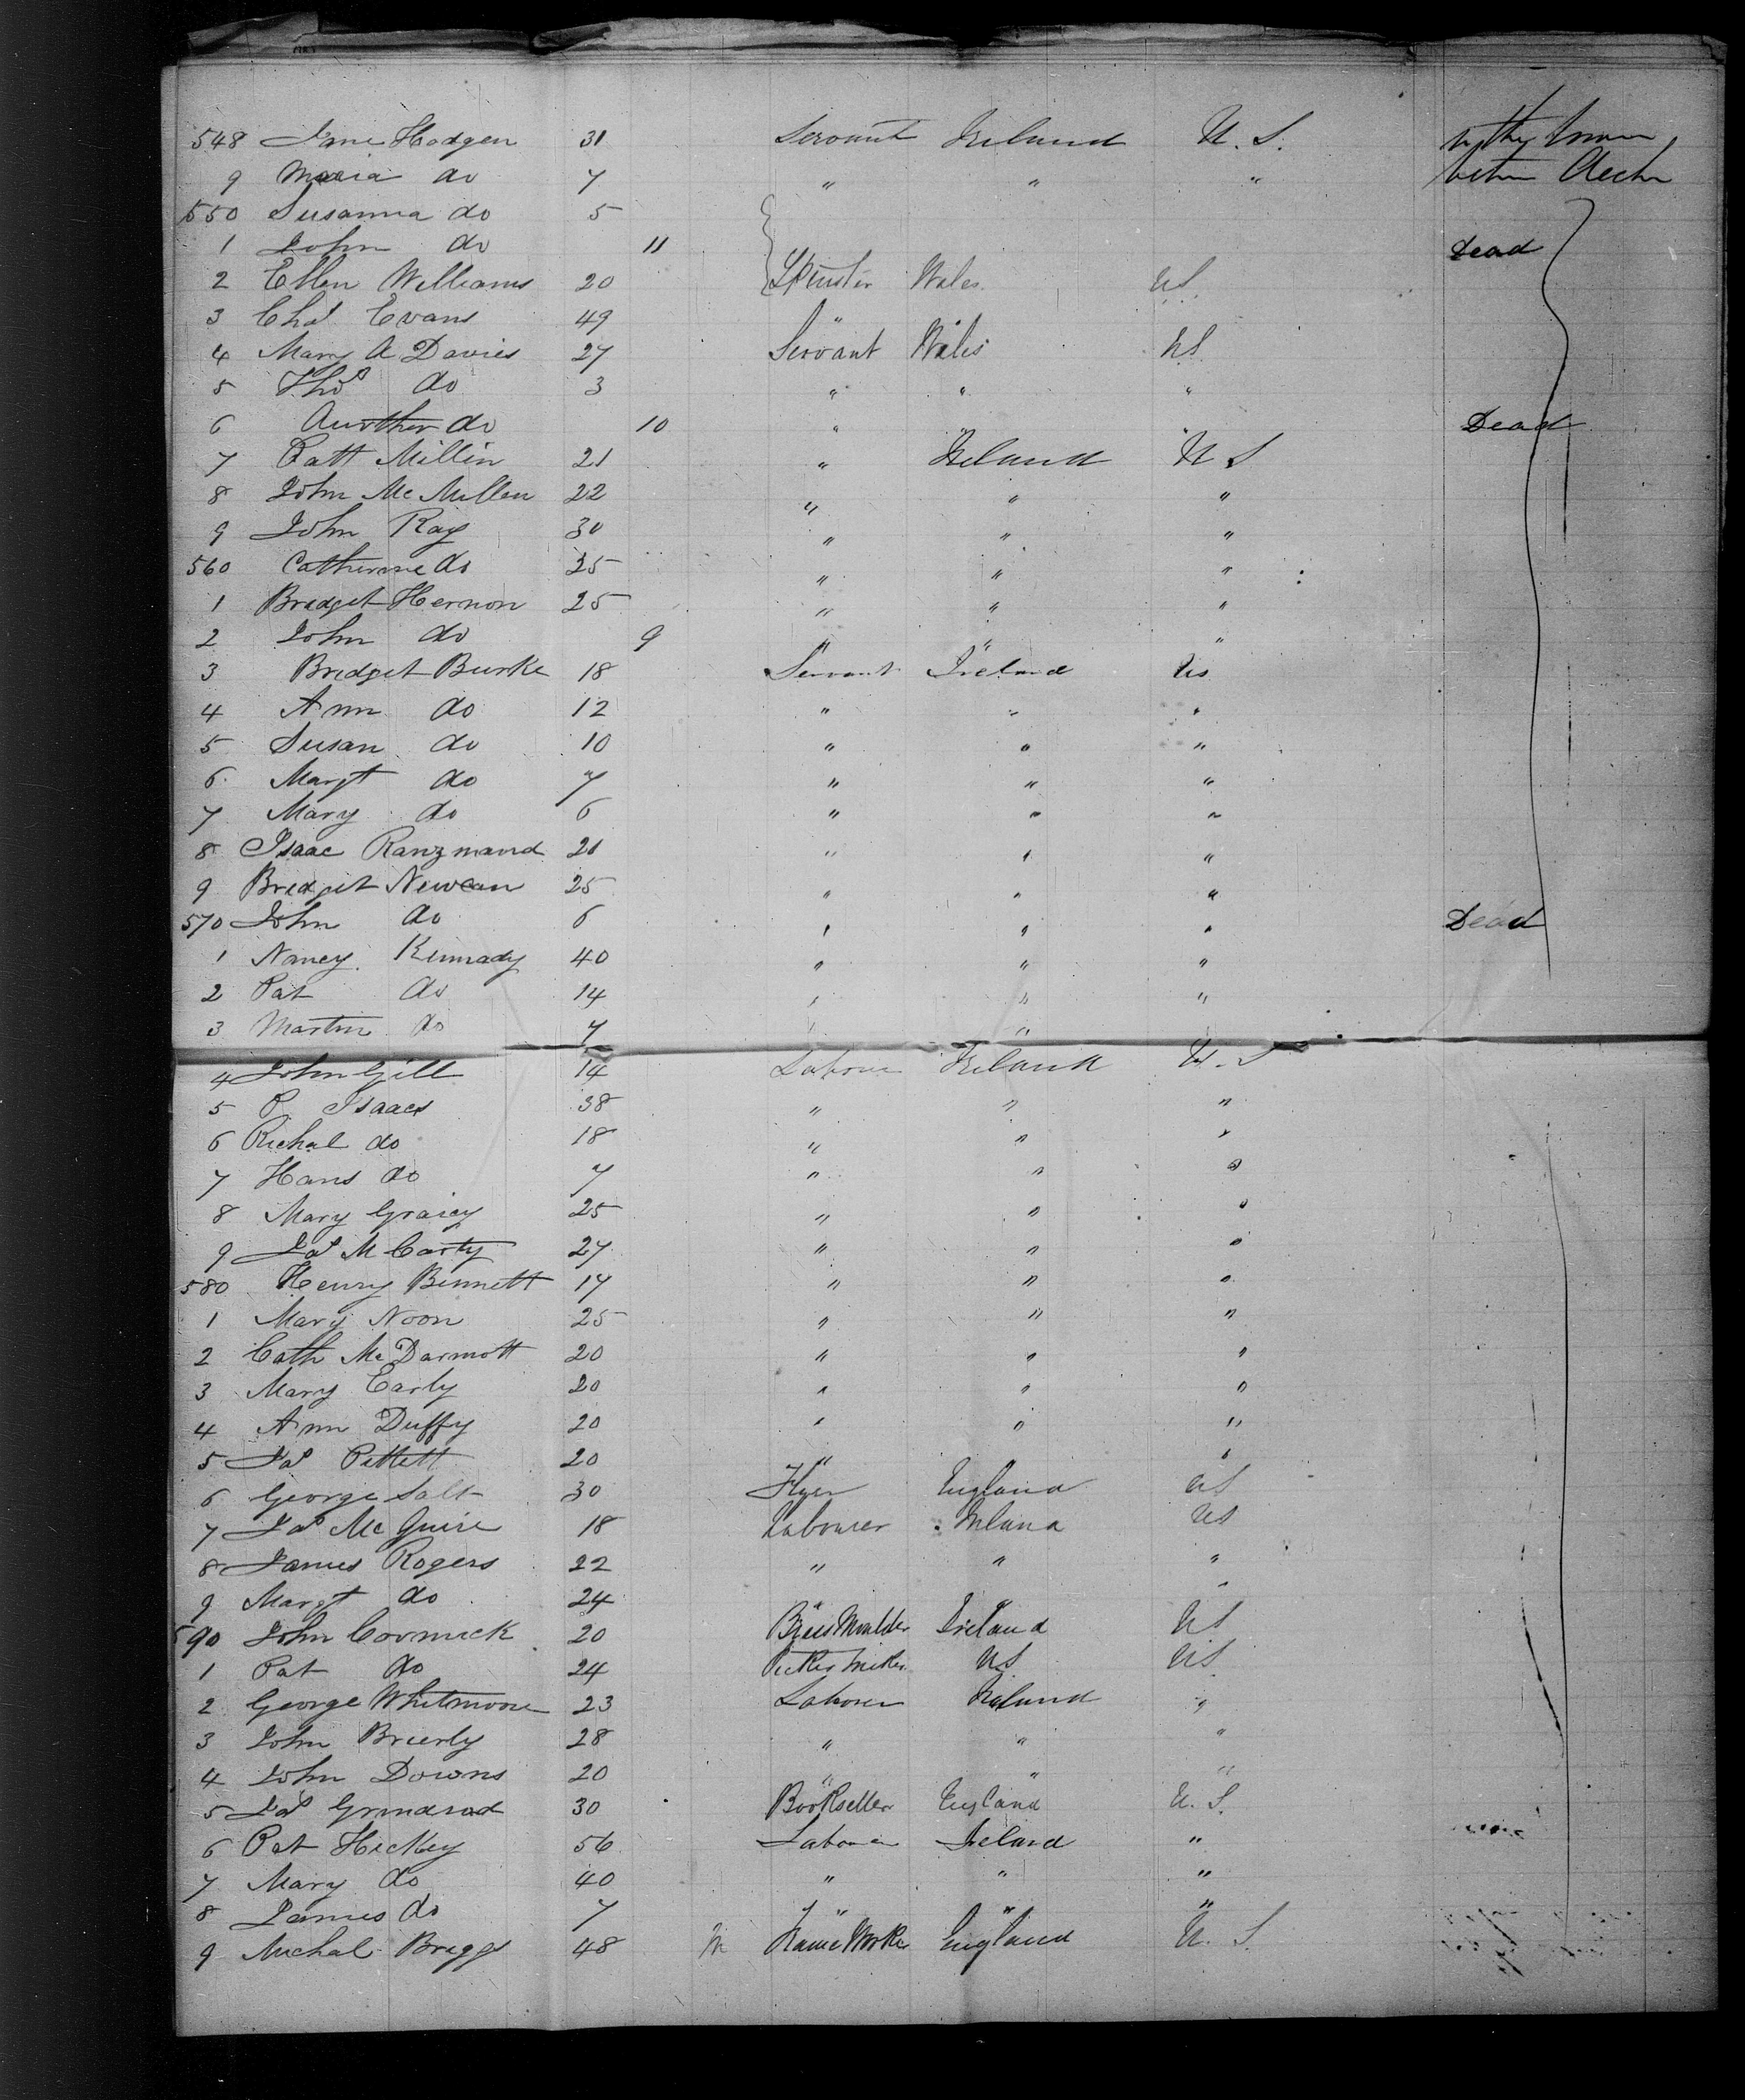 548 Jane Hodgen 31 Servant Ireland U.S.
9 Maria do 7 " " "
550 Susanna do 5
1 John do 11 Dead
2 Ellen Williams 20 Spinster Wales US
3 Chas Evans 49 "
4 Mary A Davies 27 Servant Wales US
5 Thos do 3 " " "
6 Another do 10 " " " Dead
7 Catt Millin 21 " Ireland US
8 John McMillen 22 " " "
9 John Ray 30 " " "
560 Catherine do 25 " " "
1 Bridget Hernon 25 " " "
2 John do 9 " " "
3 Bridget Burke 18 Servant Ireland US
4 Ann do 12 " " "
5 Susan do 10 " " "
6 Margt do 7 " " "
7 Mary do 6 " " "
8 Isaac Ranzmand 21 " " "
9 Bridget Newcan 25 " " "
570 John do 6 " " " Dead
1 Nancy Kennady 40 " " "
2 Pat do 14 " " "
3 Martin do 7 " "
4 John Gill 14 Labour Ireland U.S
5 P. Isaacs 38 " " "
6 Richal do 18 " " "
7 Hans do 7 " " "
8 Mary Graicy 25 " " "
9 Jas McCarty 27 " " "
580 Henry Bennett 17 " " "
1 Mary Noon 25 " " "
2 Cath McDarmott 20 " " "
3 Mary Early 20 " " "
4 Ann Duffy 20 " " "
5 Jas Pettett 20 " "
6 George Salt 30 England US
7 Jas McGuire 18 Labourer Ireland US
8 James Rogers 22 " " "
9 Margt do 24 " " "
590 John Cormick 20 Ireland US
1 Pat do 24 US US
2 George Whitmoore 23 Labourer Ireland "
3 John Brierly 28 " " "
4 John Downs 20 " " "
5 Jas Grindrod 30 Bookseller England U.S.
6 Pat Hickey 56 Labourer Ireland "
7 Mary do 40 " " "
8 James do 7 " " "
9 Michal Briggs 48 England U.S.